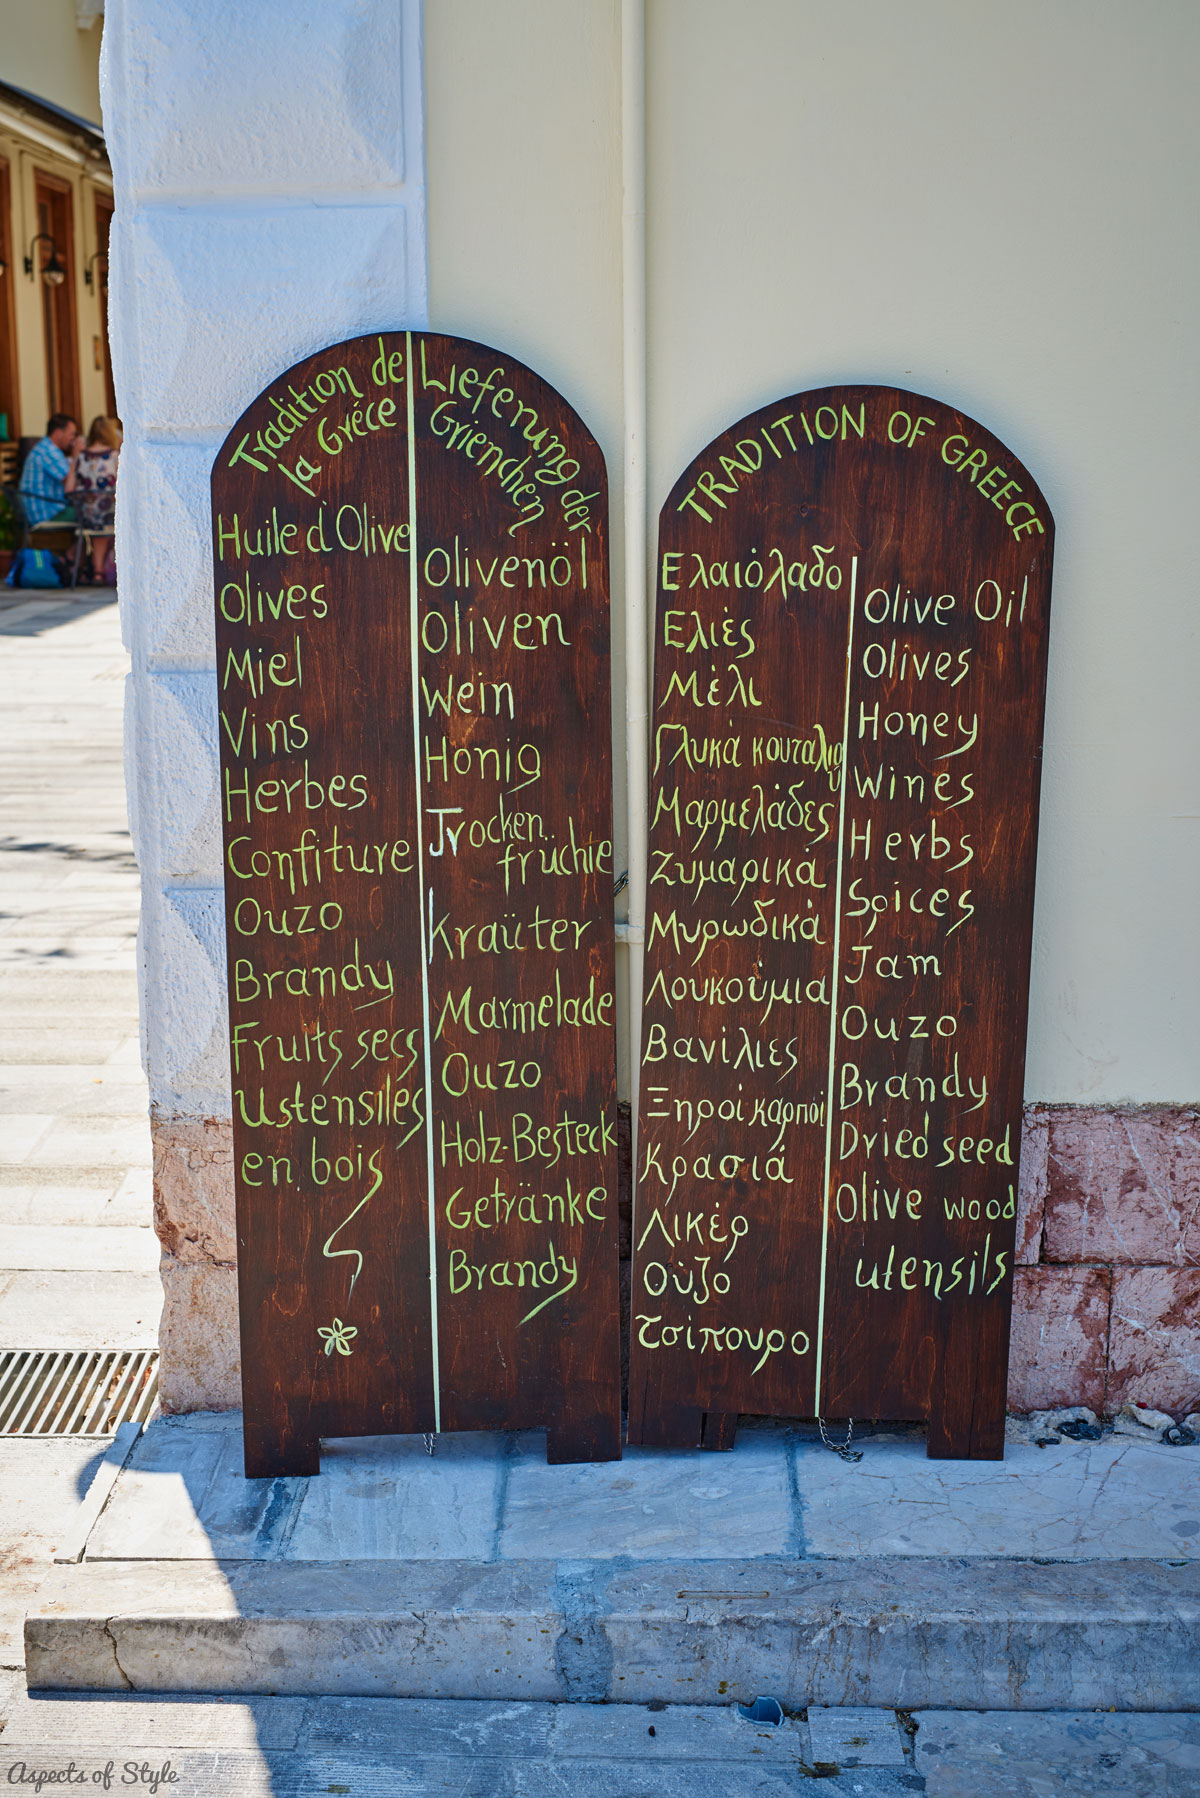 Tradition de
la Gréce
Huile d'Olive
Olives
Miel
Vins
Herbes
Confiture
Ouzo
Brandy
Fruits secs
Ustensiles
en bois
Lieferung der
Grienchen
Olivenöl
Oliven
Wein
Honig
Trocken
früchte
Kraüter
Marmelade
Ouzo
Holz-Besteck
Getränke
Brandy
TRADITION OF GREECE
Ελαιόλαδο
Ελιές
Μέλι
Γλυκά κουταλιού
Μαρμελάδες
Ζυμαρικά
Μυρωδικά
Λουκούμια
Βανίλιες
Ξηροί καρποί
Κρασιά
Λικέρ
Ούζο
Τσίπουρο
Olive Oil
Olives
Honey
Wines
Herbs
Spices
Jam
Ouzo
Brandy
Dried seed
Olive wood
utensils
Aspects of Style